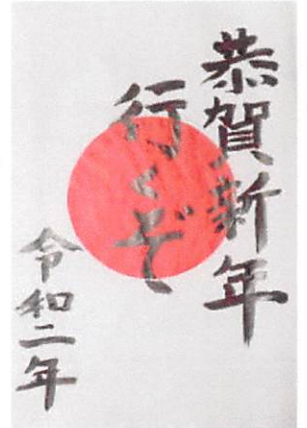 恭賀新年
行くぞ
令和二年